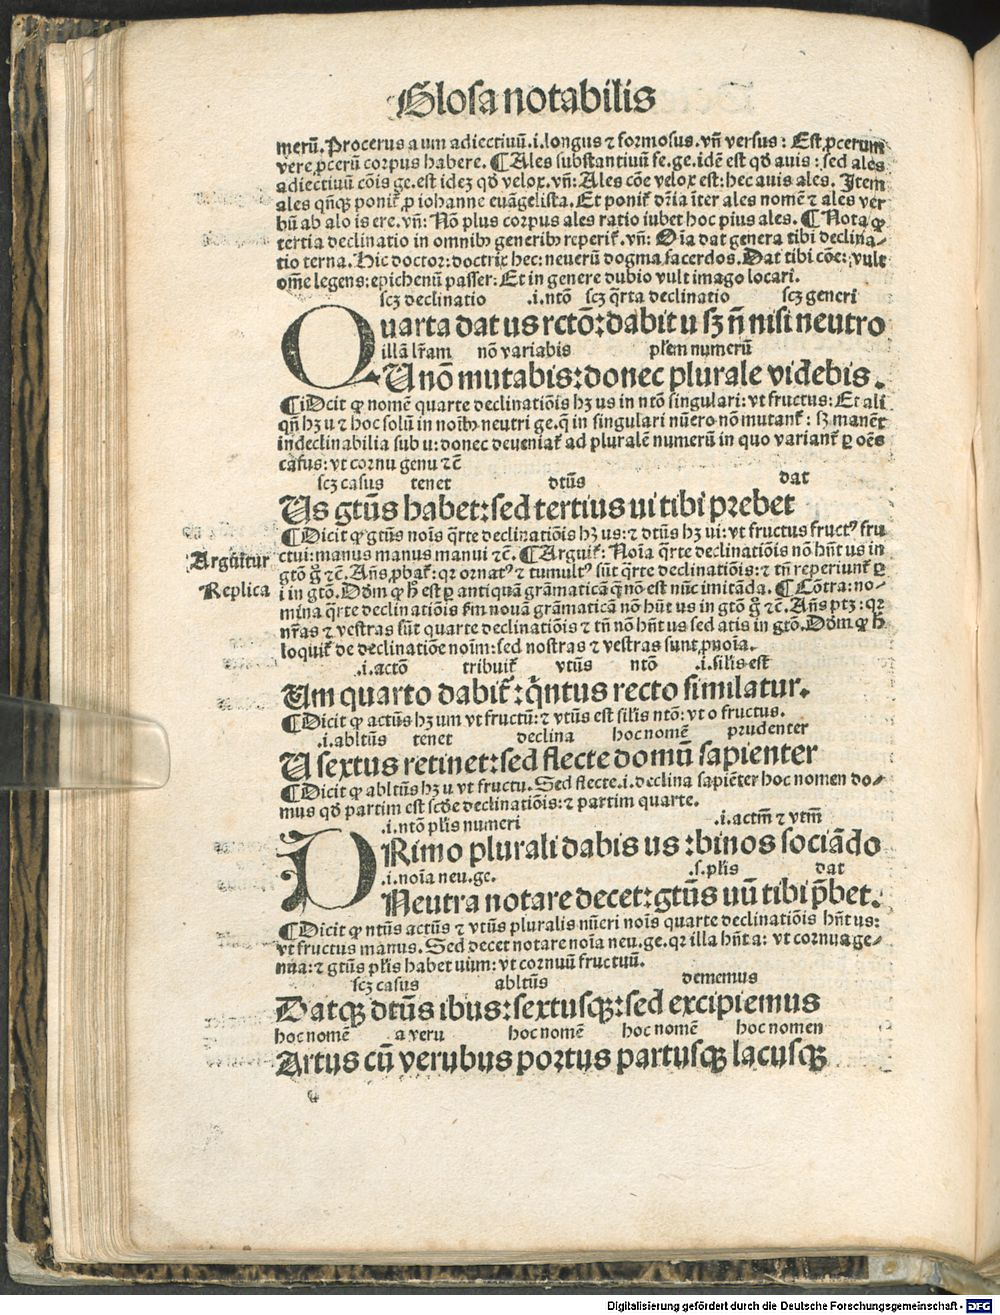 Glosa notabilis
merū. Procerus a um adiectiuū .i. longus ⁊ formosus. vñ versus: Est ꝓcerum
vere ꝓcerū corpus habere. ¶ Ales substantiuū fe. ge. idē est qđ auis: sed ales
adiectiuū cōis ge. est idez qđ velox. vñ: Ales cōe velox est: hec auis ales. Item
ales qñqꝫ poniť ꝓ iohanne euāgelista. Et poniť dr̄ia īter ales nomē ⁊ ales ver
bū ab alo is ere. vñ: Nō plus corpus ales ratio iubet hoc pius ales. ¶ Nota ꝙ
tertia declinatio in omnibꝫ generibꝫ reperiť. vñ: Oīa dat genera tibi declina-
tio terna. Hic doctor: doctrix hec: neuerū dogma sacerdos. Dat tibi cōe: vult
om̄e legens: epichenū passer: Et in genere dubio vult imago locari.
scꝫ declinatio .i. ntō scꝫ q̄rta declinatio scꝫ generi
Quarta dat us rctō: dabit u sꝫ ñ nisi neutro
illā lr̄am nō variabis pl̄em numerū
U nō mutabis: donec plurale videbis.
¶ Dicit ꝙ nomē quarte declinatiōis hꝫ us in ntō singulari: vt fructus: Et ali
qñ hꝫ u ⁊ hoc solū in noībꝫ neutri ge. q̄ in singulari nūero nō mutanť: sꝫ manēt
indeclinabilia sub u: donec deueniať ad pluralē numerū in quo varianť ꝑ oēs
casus: vt cornu genu ⁊c̄
scꝫ casus tenet dtūs dat
Us gtūs habet: sed tertius ui tibi prebet
¶ Dicit ꝙ gtūs noīs q̄rte declinatiōis hꝫ us: ⁊ dtūs hꝫ ui: vt fructus fructꝰ fru
ctui: manus manus manui ⁊c̄. ¶ Arguiť: Noīa q̄rte declinatiōis nō hn̄t us in
Arguitur
gtō g̊ ⁊c̄. Añs ꝓbať: qr ornatꝰ ⁊ tumultꝰ sūt q̄rte declinatiōis: ⁊ tñ reperiunť ꝑ
i in gtō. Dōm ꝙ h̄ est ꝑ antiquā grāmaticā q̄ nō est nūc imitāda. ¶ Cōtra: no-
Replica
mina q̄rte declinatiōis ẜm nouā grāmaticā nō hn̄t us in gtō g̊ ⁊c̄. Añs ptꝫ: qr
nr̄as ⁊ vestras sūt quarte declinatiōis ⁊ tñ nō hn̄t us sed atis in gtō. Dōm ꝙ h̄
loquiť de declinatiōe noīm: sed nostras ⁊ vestras sunt ꝓnoīa.
.i. actō tribuiť vtūs ntō .i. silis est
Um quarto dabiť: q̄ntus recto similatur.
¶ Dicit ꝙ actūs hꝫ um vt fructū: ⁊ vtūs est silis ntō: vt o fructus.
.i. abltūs tenet declina hoc nomē prudenter
U sextus retinet: sed flecte domū sapienter
¶ Dicit ꝙ abltūs hꝫ u vt fructu. Sed flecte .i. declina sapiēter hoc nomen do-
mus qđ partim est scđe declinatiōis: ⁊ partim quarte.
.i. ntō pl̄is numeri .i. actm̄ ⁊ vtm̄
PRimo plurali dabis us: binos sociādo
.i. noīa neu. ge. .s. pl̄is dat
Neutra notare decet: gtūs uū tibi p̄bet.
¶ Dicit ꝙ ntūs actūs ⁊ vtūs pluralis nūeri noīs quarte declinatiōis hn̄t us:
vt fructus manus. Sed decet notare noīa neu. ge. qr illa hn̄t a: vt cornua ge-
nua: ⁊ gtūs pl̄is habet uum: vt cornuū fructuū.
scꝫ casus abltūs dememus
Datqꝫ dtūs ibus: sextusqꝫ: sed excipiemus
hoc nomē a veru hoc nomē hoc nomē hoc nomen
Artus cū verubus portus partusqꝫ lacusqꝫ
Digitalisierung gefördert durch die Deutsche Forschungsgemeinschaft - DFG